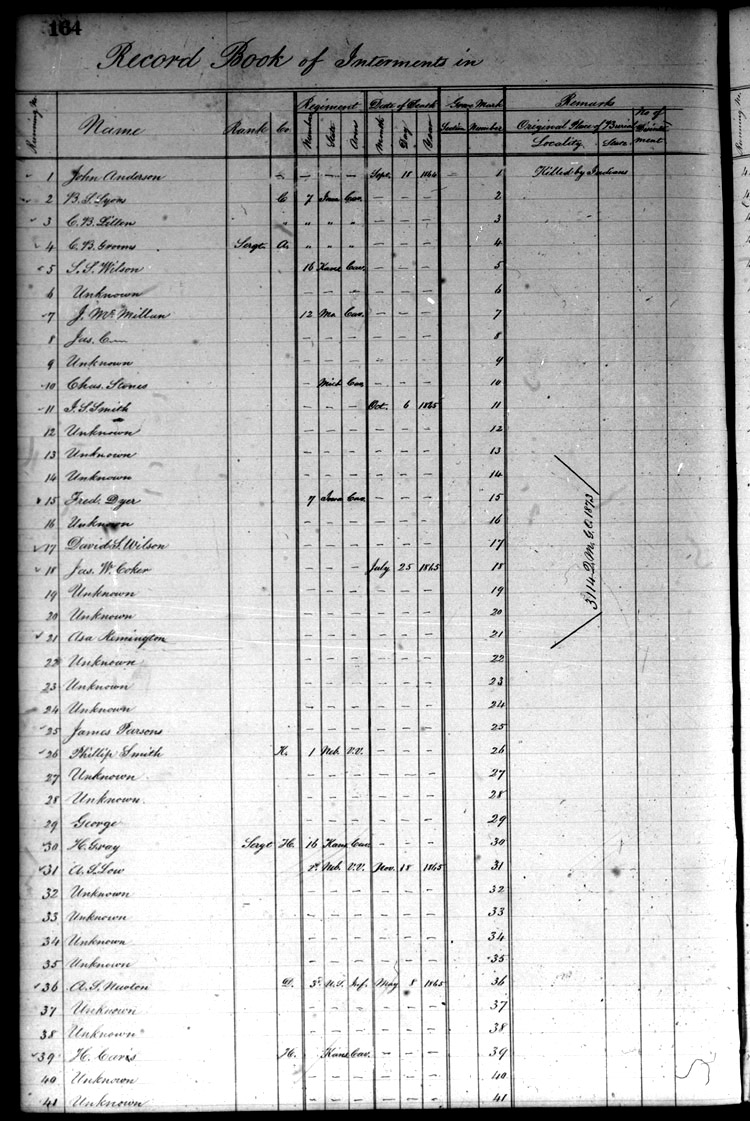 164
Record Book of Interments in
Running No. Name Rank Co. Regiment Date of Death Grave Mark Remarks No. of
Number State Arm Month Day Year Section Number Original Place of Burial
Locality State
1 John Anderson — — — — Sept. 18 1864 1 Killed by Indians
2 B. S. Lyons C 7 Iowa Cav. — — — 2
3 C. B. Litten " " " " — — — 3
4 C. B. Grooms Sergt. A. " " " — — — 4
5 S. S. Wilson 16 Kans Cav. — — — 5
6 Unknown — — — — — — 6
7 J. McMillan 12 Mo Cav. — — — 7
8 Jas. C — — — — — — 8
9 Unknown — — — — — — 9
10 Chas. Stones — Mich Cav. — — — 10
11 J. S. Smith — — — Oct. 6 1865 11
12 Unknown — — — — — — 12
13 Unknown — — — — — — 13
14 Unknown — — — — — — 14
15 Fred. Dyer 7 Iowa Cav. — — — 15
16 Unknown — — — — — — 16
17 David S. Wilson — — — — — — 17
18 Jas. W. Coker — — — July 25 1865 18
19 Unknown — — — — — — 19
20 Unknown — — — — — — 20
21 Asa Remington — — — — — — 21
22 Unknown — — — — — — 22
23 Unknown — — — — — — 23
24 Unknown — — — — — — 24
25 James Parsons — — — — — — 25
26 Phillip Smith K. 1 Neb V.V. — — — 26
27 Unknown — — — — — — 27
28 Unknown — — — — — — 28
29 George — — — — — — 29
30 H. Gray Sergt H. 16 Kans Cav. — — — 30
31 A. S. Low 1st Neb V.V. Nov. 18 1865 31
32 Unknown — — — — — — 32
33 Unknown — — — — — — 33
34 Unknown — — — — — — 34
35 Unknown — — — — — — 35
36 A. S. Newton D. U.S. Inf. May 8 1865 36
37 Unknown — — — — — — 37
38 Unknown — — — — — — 38
39 H. Caris H. Kans Cav. — — — 39
40 Unknown — — — — — — 40
41 Unknown — — — — — — 41
3114 Q.M.G.O. 1873
Running No.